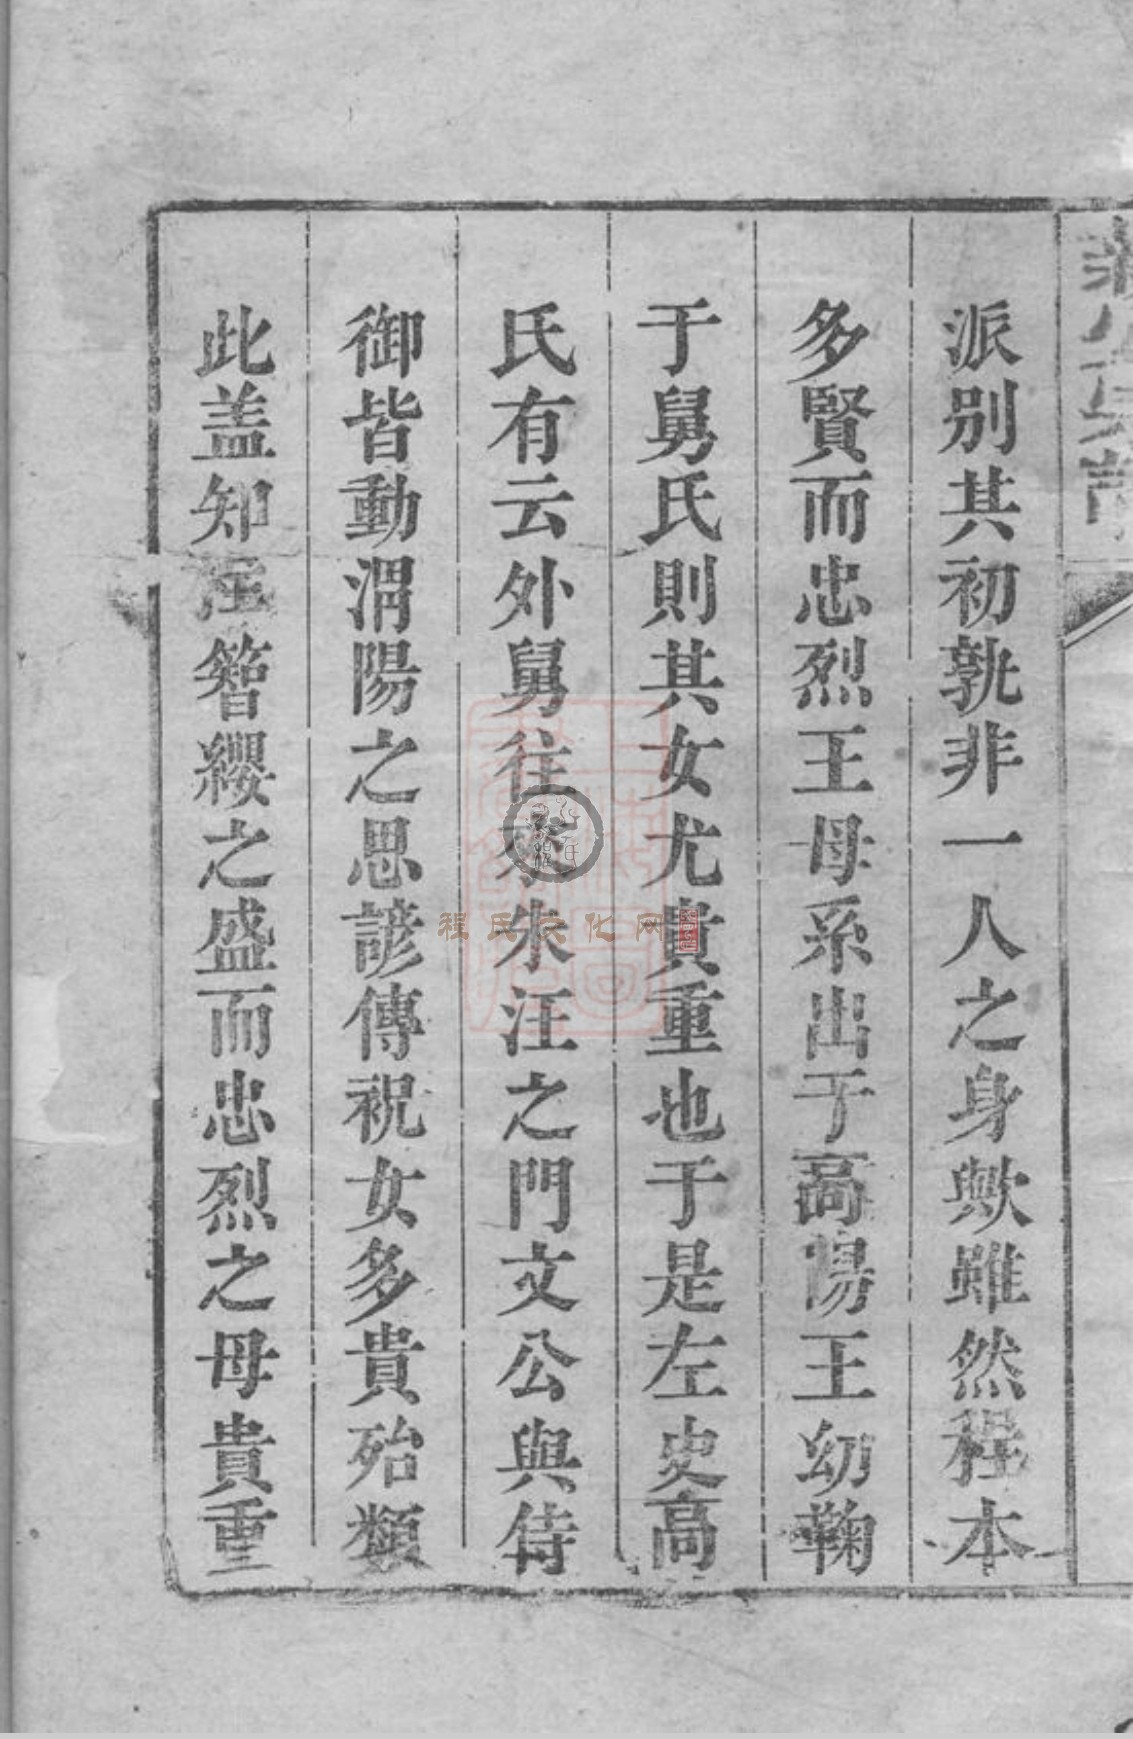 派别其初孰非一人之身歟雖然程本
多賢而忠烈王母系出于高陽王幼鞠
于舅氏則其女尤貴重也于是左史高
氏有云外舅往來朱汪之門文公與侍
御皆動渭陽之思諺傳祝女多貴殆類
此盖知汪簪纓之盛而忠烈之母貴重
程氏文化网